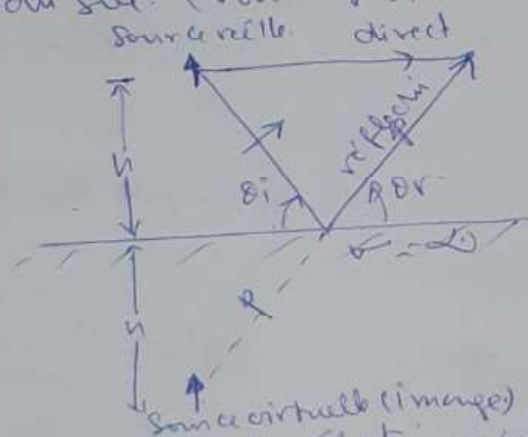 source réelle direct
réfléchi
h
θi
R θr
σ = ∞
h
R
source virtuelle (image)